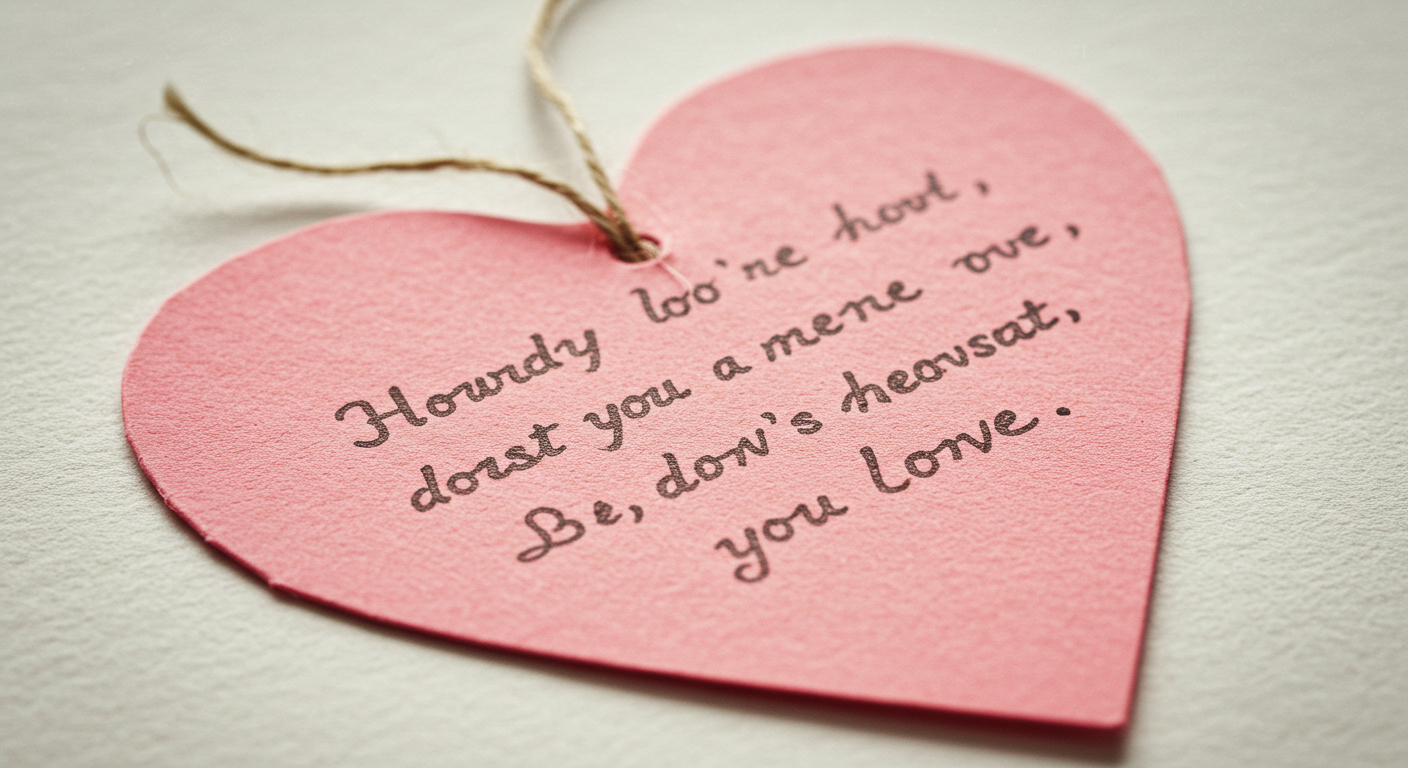 Howrdy loo're hovl,
dorst you a mene ove,
Be, don's heovsat,
you lonve.